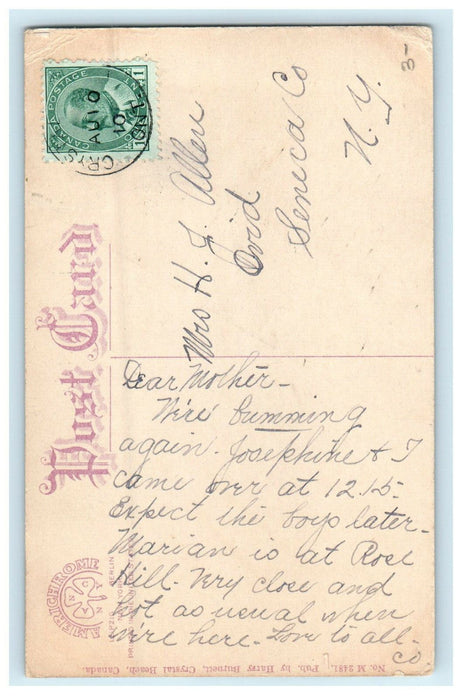 3-
CANADA POSTAGE
1
1
CRYST
AU 10
10
ONT
Mrs H. J. Allen
Ovid
Seneca Co
N. Y.
Post Card
AMERICHROME
Dear Mother -
We're bumming
again. Josephine & I
came over at 12.15-
Expect the boys later-
Marian is at Rose
Hill. Very close and
hot as usual when
we're here. Love to all-
Co.
No. M 2481. Pub. by Harry Burnett, Crystal Beach, Canada.